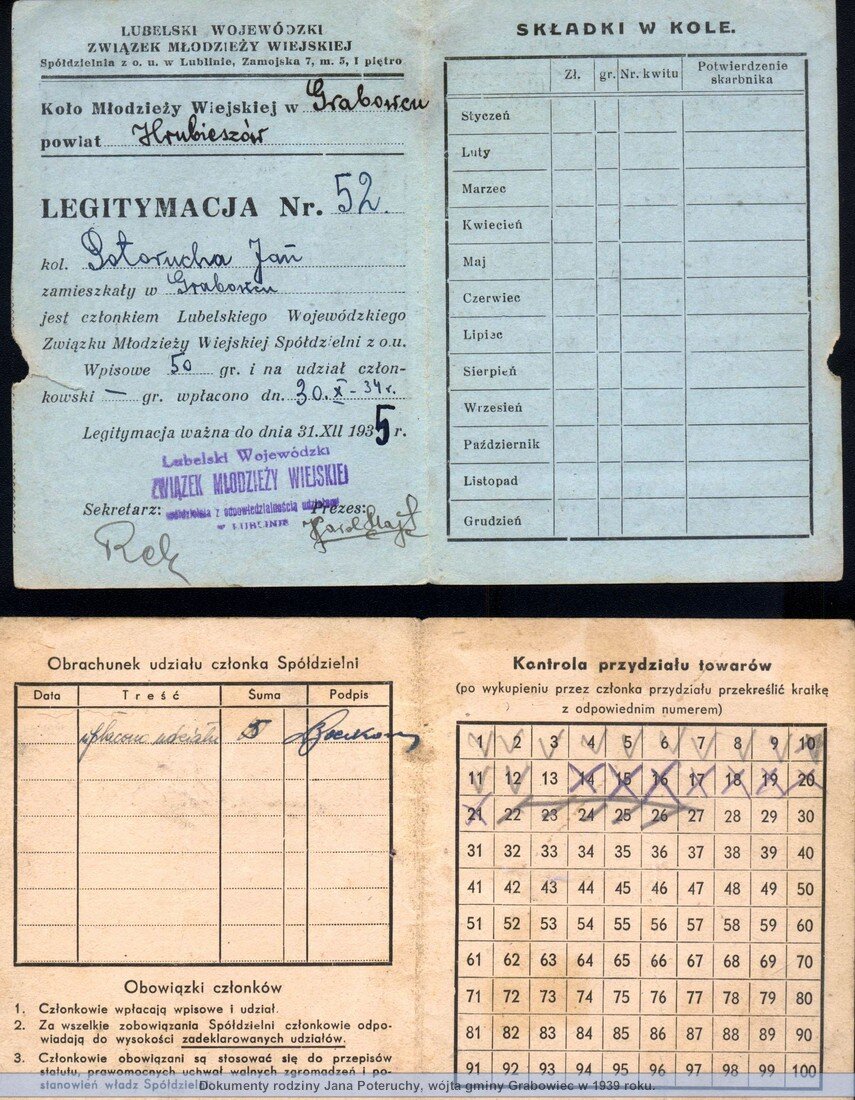 LUBELSKI WOJEWÓDZKI
ZWIĄZEK MŁODZIEŻY WIEJSKIEJ
Spółdzielnia z o. u. w Lublinie, Zamojska 7, m. 5, I piętro
Koło Młodzieży Wiejskiej w Grabowcu
powiat Hrubieszów
LEGITYMACJA Nr. 52.
kol. Potorucha Jan
zamieszkały w Grabowcu
jest członkiem Lubelskiego Wojewódzkiego
Związku Młodzieży Wiejskiej Spółdzielni z o.u.
Wpisowe 50 gr. i na udział człon-
kowski — gr. wpłacono dn. 30.X-34r.
Legitymacja ważna do dnia 31.XII 1935 r.
Lubelski Wojewódzki
ZWIĄZEK MŁODZIEŻY WIEJSKIEJ
spółdzielnia z odpowiedzialnością udziałami
w LUBLINIE
Sekretarz: Prezes:
SKŁADKI W KOLE.
Zł. gr. Nr. kwitu Potwierdzenie
skarbnika
Styczeń
Luty
Marzec
Kwiecień
Maj
Czerwiec
Lipiec
Sierpień
Wrzesień
Październik
Listopad
Grudzień
Obrachunek udziału członka Spółdzielni
Data Treść Suma Podpis
wpłacono udziału 5
Obowiązki członków
1. Członkowie wpłacają wpisowe i udział.
2. Za wszelkie zobowiązania Spółdzielni członkowie odpo-
wiadają do wysokości zadeklarowanych udziałów.
3. Członkowie obowiązani są stosować się do przepisów
statutu, prawomocnych uchwał walnych zgromadzeń i po-
stanowień władz Spółdzielni
Kontrola przydziału towarów
(po wykupieniu przez członka przydziału przekreślić kratkę
z odpowiednim numerem)
1 2 3 4 5 6 7 8 9 10
11 12 13 14 15 16 17 18 19 20
21 22 23 24 25 26 27 28 29 30
31 32 33 34 35 36 37 38 39 40
41 42 43 44 45 46 47 48 49 50
51 52 53 54 55 56 57 58 59 60
61 62 63 64 65 66 67 68 69 70
71 72 73 74 75 76 77 78 79 80
81 82 83 84 85 86 87 88 89 90
91 92 93 94 95 96 97 98 99 100
Dokumenty rodziny Jana Poteruchy, wójta gminy Grabowiec w 1939 roku.